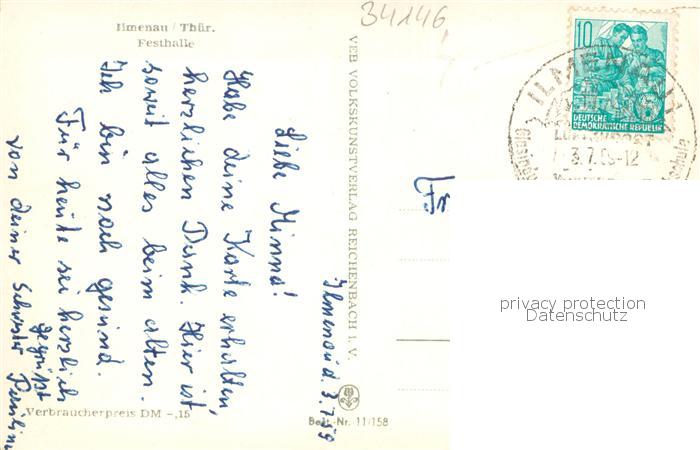 34146
Ilmenau / Thür.
Festhalle
VEB VOLKSKUNSTVERLAG REICHENBACH i. V.
Verbraucherpreis DM -,15
Best.-Nr. 11/158
10
DEUTSCHE
DEMOKRATISCHE REPUBLIK
ILMENAU
3.7.59-12
Fr
privacy protection
Datenschutz
Ilmenau d. 3.7.59
Liebe Minna!
Habe deine Karte erhalten,
herzlichen Dank. Hier ist
soweit alles beim alten.
Ich bin noch gesund.
Für heute sei herzlich
gegrüßt
von deiner Schwester